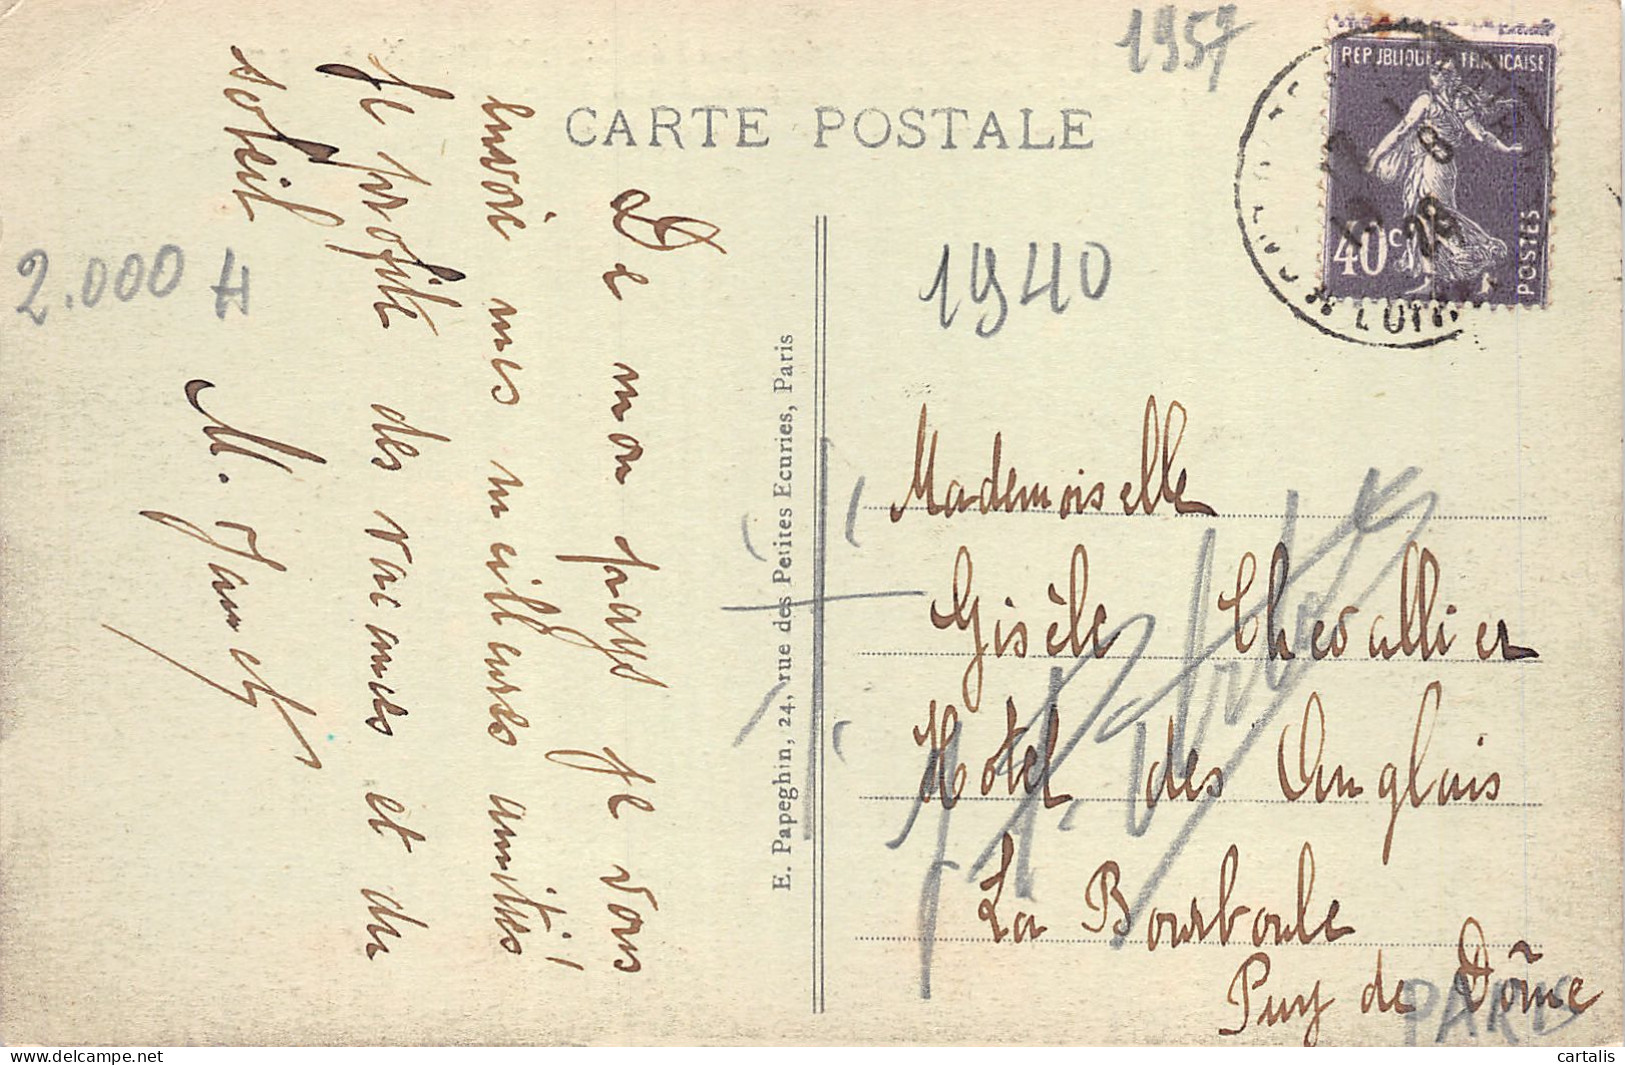 1957
CARTE POSTALE
REPUBLIQUE FRANCAISE
40c
POSTES
8
28
De mon pays je vous
envoie mes meilleures amitiés!
Je profite des vacances et du
soleil
M.
2.000 H
1940
E. Papeghin, 24, rue des Petites Ecuries, Paris
Mademoiselle
Gisèle Chevallier
Hôtel des Anglais
La Bourboule
Puy de Dôme
PARIS
cartalis